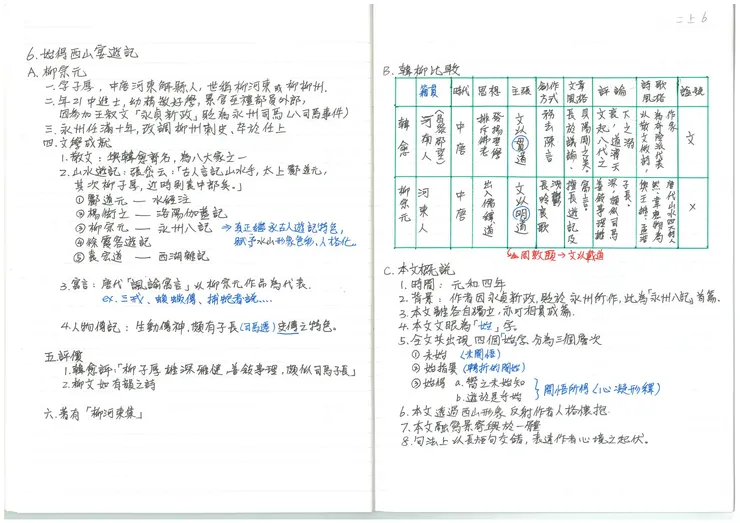 二上 6
6. 始得西山宴遊記
A. 柳宗元
一. 字子厚，中唐河東解縣人，世稱柳河東或柳柳州.
二. 年21中進士，幼精敏好學，累官至禮部員外郎，
因參加王叔文「永貞新政」貶為永州司馬(八司馬事件)
三. 永州任滿十年，改調柳州刺史，卒於任上
四. 文學成就
1. 散文：與韓愈齊名，為八大家之一
2. 山水遊記：張岱云：「古人言記山水手，太上酈道元，
其次柳子厚，近時則袁中郎矣.」
①酈道元 — 水經注
②楊衒之 — 洛陽伽藍記
③柳宗元 — 永州八記 → 真正繼承古人遊記特色，
賦予水山形象色彩、人格化.
④徐霞客遊記
⑤袁宏道 — 西湖雜記
3. 寓言：唐代「諷諭寓言」以柳宗元作品為代表.
ex. 三戒、蝜蝂傳、捕蛇者說……
4. 人物傳記：生動傳神，頗有子長(司馬遷)史傳之特色。
五. 評價
1. 韓愈評：「柳子厚雄深雅健，善敘事理，頗似司馬子長」
2. 柳文如有韻之詩
六. 著有「柳河東集」
B. 韓柳比較
籍貫 時代 思想 主張 創作方式 文章風格 評論 詩歌風格 諡號
韓愈 河南人(昌黎郡望) 中唐 推行儒學 排斥佛老 文以貫道 務去陳言 長於議論、 文起八代之衰，道濟天下之溺 以散文做詩， 文
柳宗元 河東人 中唐 出入佛釋道 文以明道 擅長遊記及 雄深雅健似司馬子長。 ×
周敦頤 → 文以載道
C. 本文概說
1. 時間：元和四年
2. 背景：作者因永貞新政，貶於永州所作，此為「永州八記」首篇.
3. 本文雖各自獨立，亦可相貫成篇.
4. 本文文眼為「始」字。
5. 全文共出現四個「始」字，分為三個層次
①未始 (未開悟)
②始指異 (轉折的開始)
③始得 a. 嚮之未始知
b. 遊於是乎始
} 開悟所得(心凝形釋)
6. 本文透過西山形象反射作者人格懷抱.
7. 本文融寫景寄興於一體
8. 句法上以長短句交錯，表達作者心境之起伏。